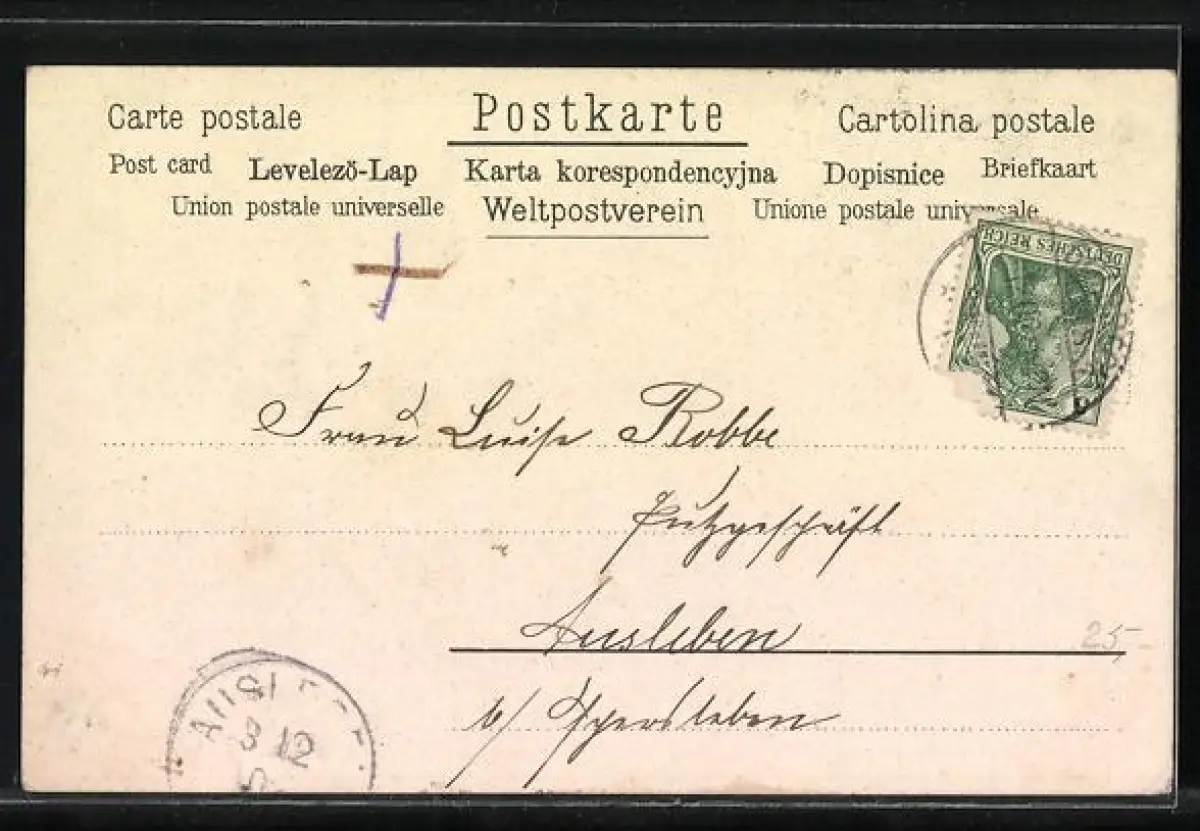 Carte postale Postkarte Cartolina postale
Post card Levelező-Lap Karta korespondencyjna Dopisnice Briefkaart
Union postale universelle Weltpostverein Unione postale universale
DEUTSCHES REICH
Frau Luise Robbe
Putzgeschäft
Ausleben
25,-
b/
3 12